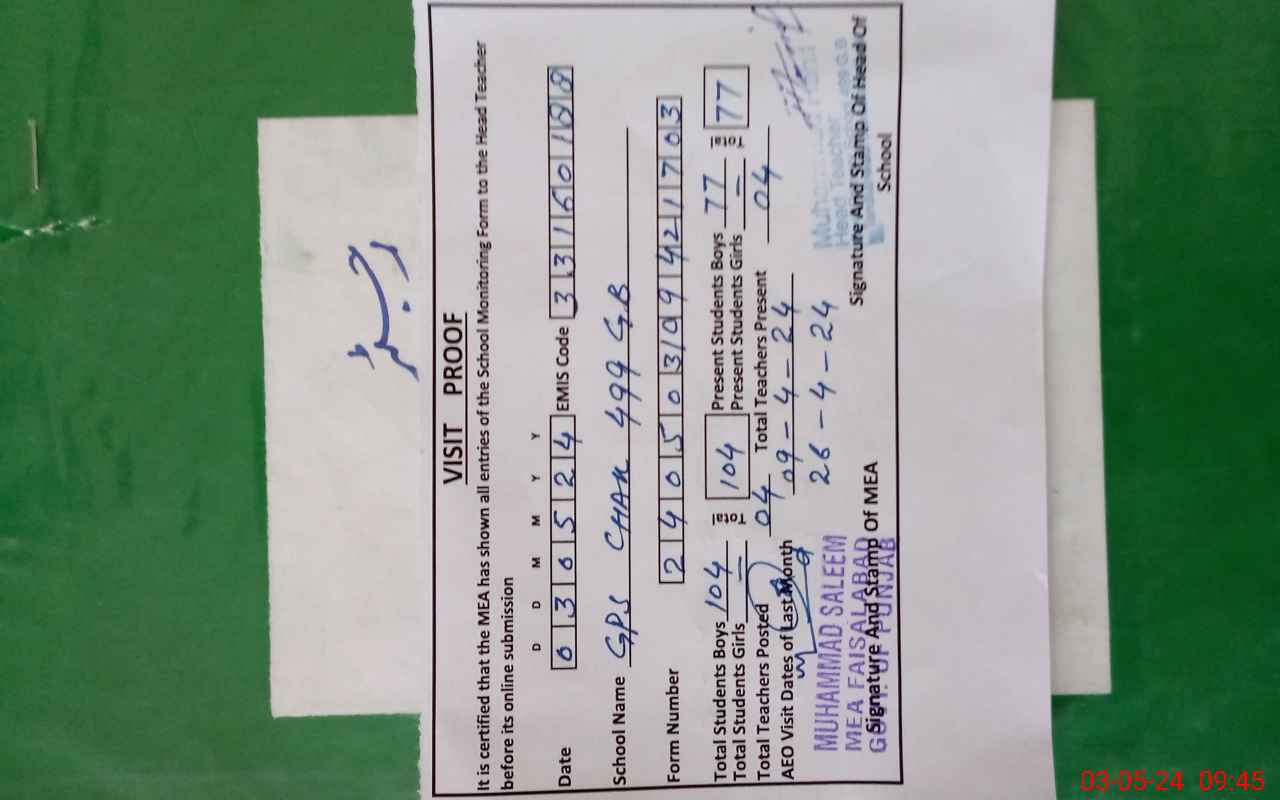 رجسٹر
VISIT PROOF
It is certified that the MEA has shown all entries of the School Monitoring Form to the Head Teacher
before its online submission
D D M M Y Y
Date 030524 EMIS Code 33160188
School Name GPS CHAK 499 G.B
Form Number 24050309421703
Total Students Boys 104 Total 104 Present Students Boys 77 Total 77
Total Students Girls — Present Students Girls —
Total Teachers Posted 04 Total Teachers Present 04
AEO Visit Dates of Last Month 09-4-24
26-4-24
MUHAMMAD SALEEM
MEA FAISALABAD
GOVT. OF PUNJAB
Signature And Stamp Of MEA
Head Teacher
Signature And Stamp Of Head Of
School
03-05-24 09:45